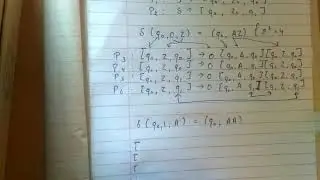 P₂ : S → [q₀, Z₀, q₁]
δ(q₀, 0, Z) = (q₀, AZ) { 2² = 4
P₃ : [q₀, Z, q₀] → 0 [q₀, A, q₀][q₀, Z, q₀]
P₄ : [q₀, Z, q₀] → 0 [q₀, A, q₁][q₁, Z, q₀]
P₅ : [q₀, Z, q₁] → 0 [q₀, A, q₀][q₀, Z, q₁]
P₆ : [q₀, Z, q₁] → 0 [q₀, A, q₁][q₁, Z, q₁]
δ(q₀, 1, A) = (q₀, AA)
[
[
[